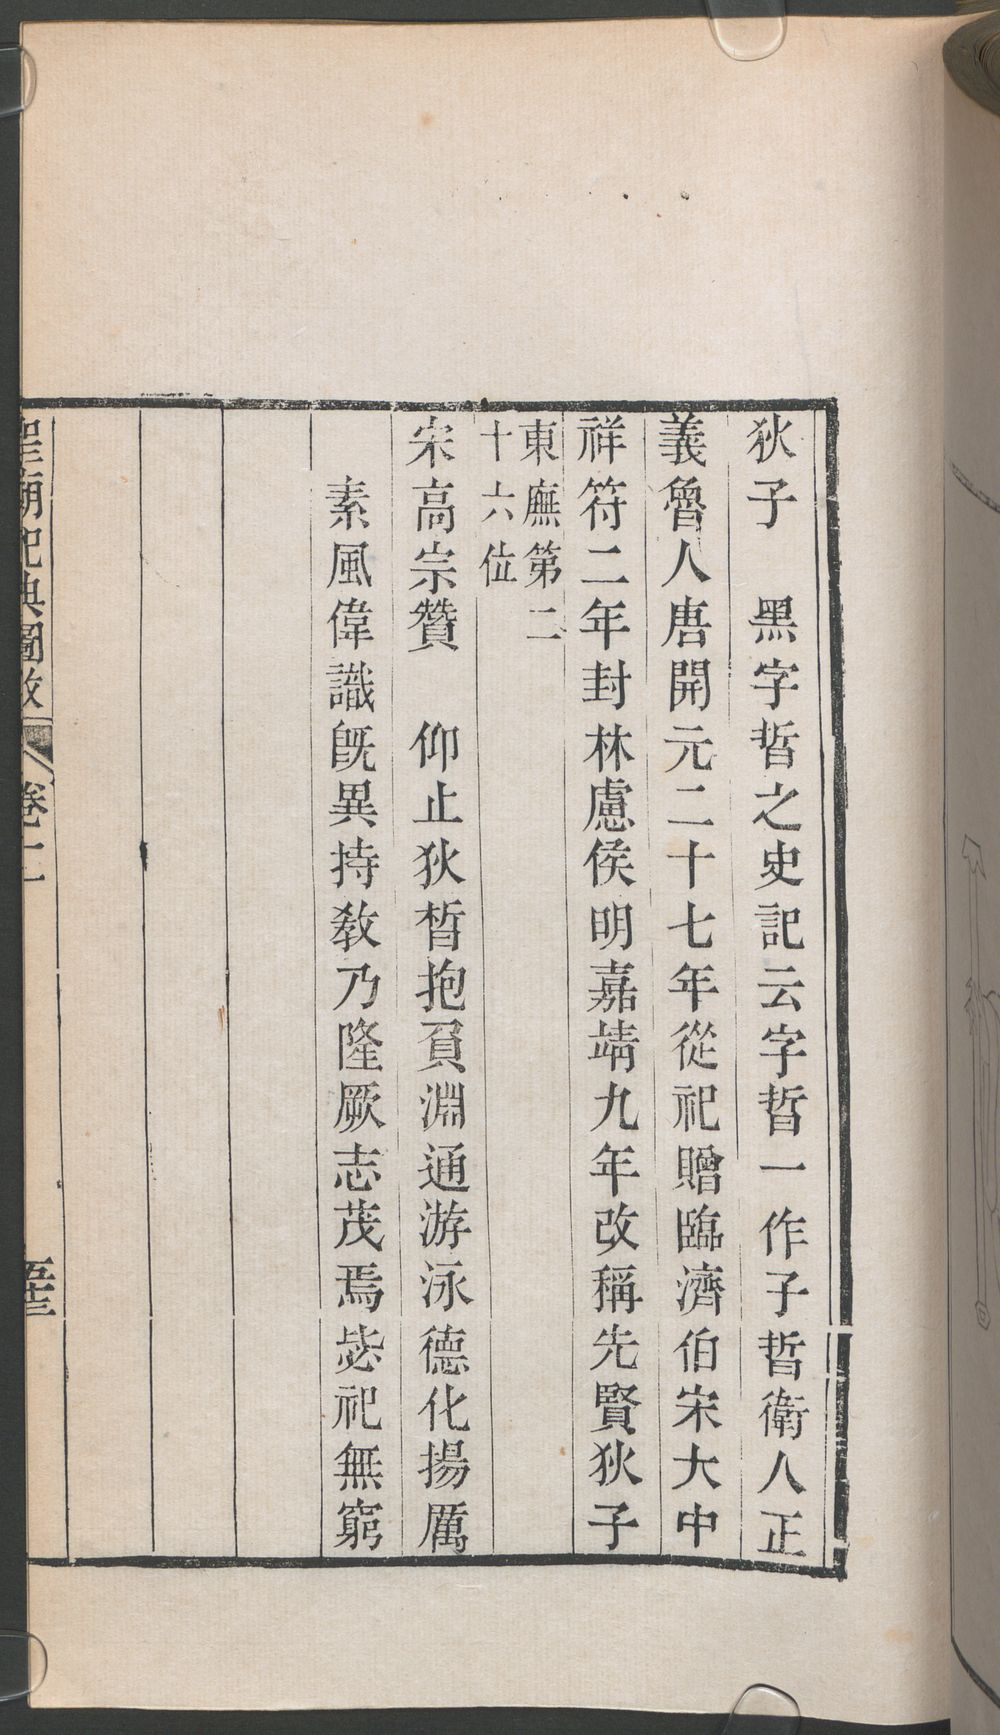 狄子　黑字晳之史記云字晳一作子晳衛人正
義魯人唐開元二十七年從祀贈臨濟伯宋大中
祥符二年封林慮侯明嘉靖九年改稱先賢狄子
東廡第二
十六位
宋高宗贊　仰止狄晳抱負淵通游泳德化揚厲
素風偉識旣異持敎乃隆厥志茂焉毖祀無窮
聖廟祀典圖攷　卷二　五十三